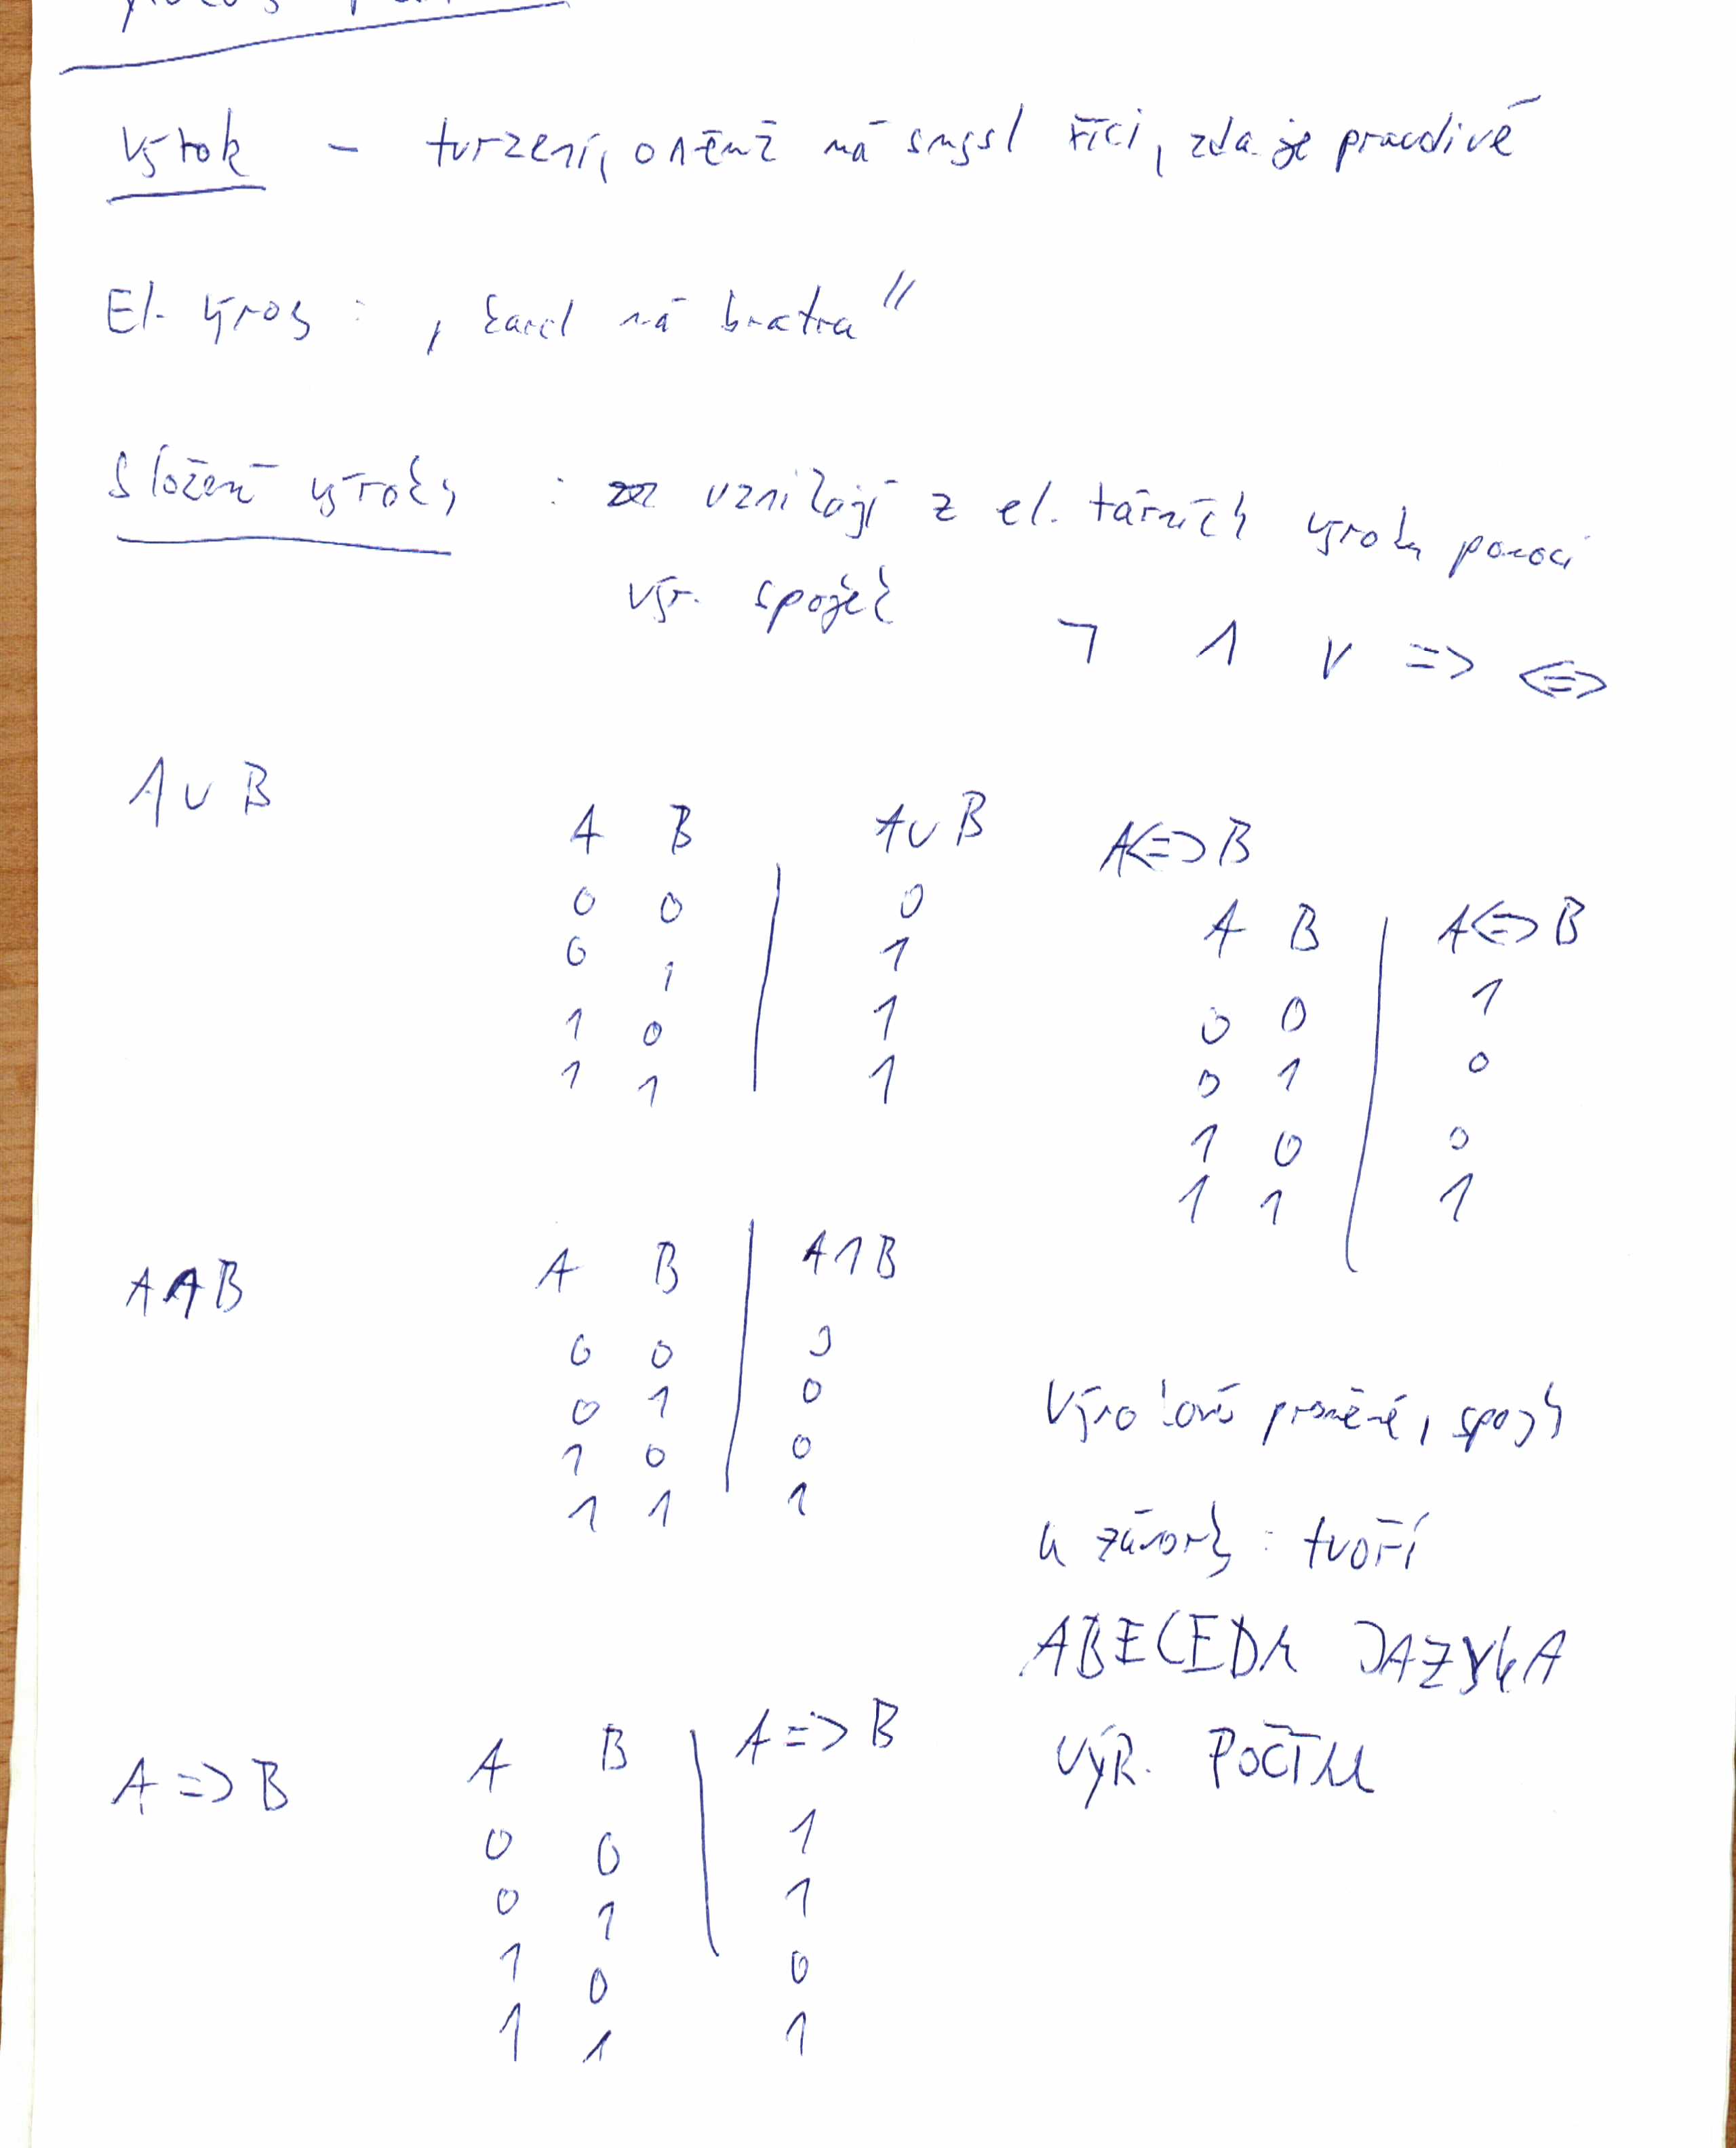 Výrok – tvrzení, o němž má smysl říci, zda je pravdivé
El. výrok : „Karel má bratra"
Složené výroky : vznikají z el. tárních výroků pomocí
výr. spojek ¬ ∧ ∨ => <=>
A∨B
A B | A∨B
0 0 | 0
0 1 | 1
1 0 | 1
1 1 | 1
A<=>B
A B | A<=>B
0 0 | 1
0 1 | 0
1 0 | 0
1 1 | 1
A∧B
A B | A∧B
0 0 | 0
0 1 | 0
1 0 | 0
1 1 | 1
A=>B
A B | A=>B
0 0 | 1
0 1 | 1
1 0 | 0
1 1 | 1
Výrokové proměné, spojky
a závorky : tvoří
ABECEDA JAZYKA
VÝR. POČTU